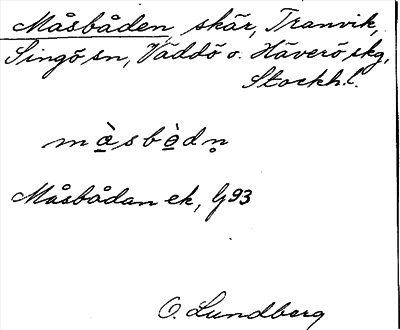 Måsbåden skär, Tranvik,
Singö sn, Väddö o. Häverö skg,
Stockh.l.
må̱̀sbå̱̀dn̥
Måsbådan ek, G93
O. Lundberg